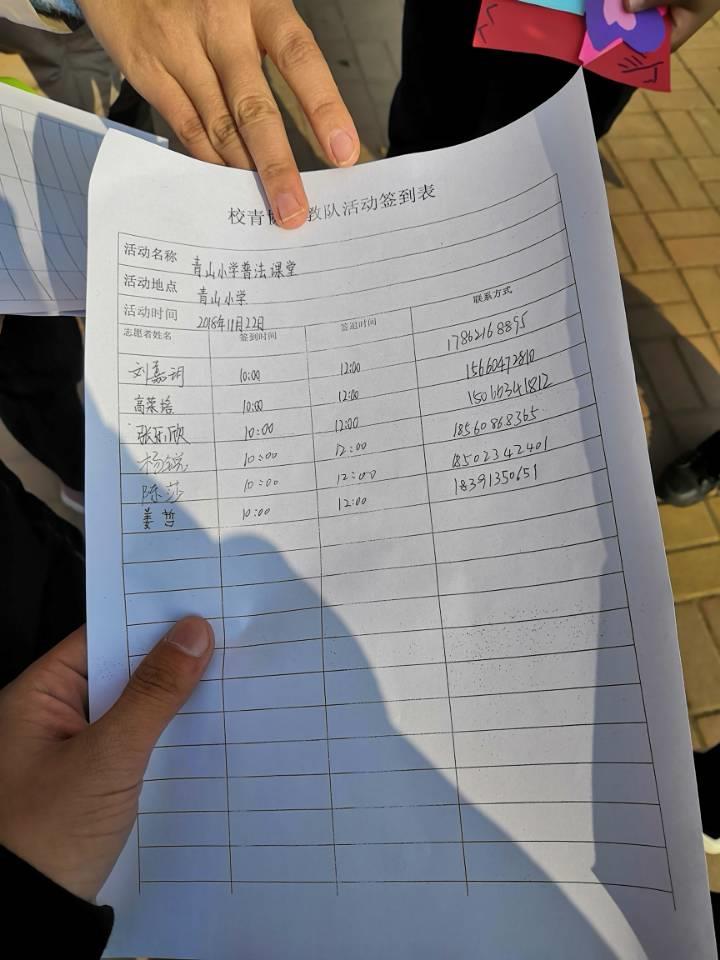 校青 教队活动签到表
活动名称 青山小学普法课堂
活动地点 青山小学
活动时间 2018年11月22日
志愿者姓名 签到时间 签退时间 联系方式
刘嘉玥 10:00 12:00 17862168895
高荣培 10:00 12:00 15660472810
张乐欣 10:00 12:00 15060341812
杨锐 10:00 12:00 18560868365
陈莎 10:00 12:00 18502342401
姜哲 10:00 12:00 18391350651